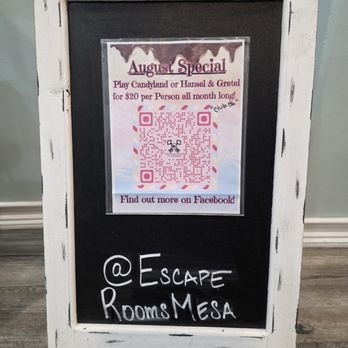 August Special
Play Candyland or Hansel & Gretel
for $20 per Person all month long!
Find out more on Facebook!
@ESCAPE
ROOMSMESA